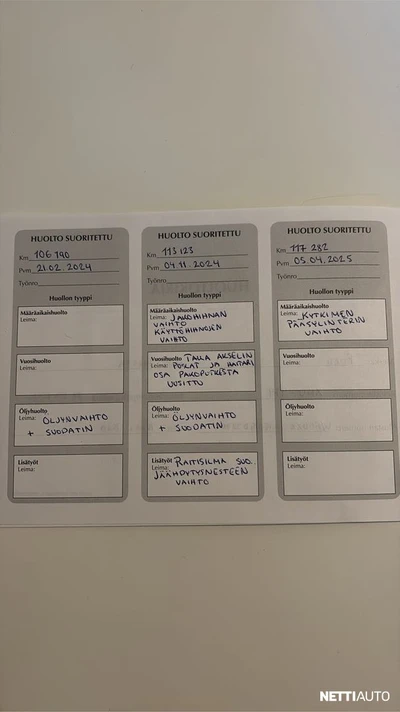 HUOLTO SUORITETTU
Km 106 190
Pvm 21.02.2024
Työnro
Huollon tyyppi
Määräaikaishuolto
Leima:
Vuosihuolto
Leima:
Öljyhuolto
Leima: ÖLJYNVAIHTO
+ SUODATIN
Lisätyöt
Leima:
HUOLTO SUORITETTU
Km 113 123
Pvm 04.11.2024
Työnro
Huollon tyyppi
Määräaikaishuolto
Leima: JAKOHIHNAN
VAIHTO
KÄYTTÖHIHNOJEN
VAIHTO
Vuosihuolto TAKA AKSELIN
Leima: POLAT JA HAITARI
OSA PAKOPUTKESTA
UUSITTU
Öljyhuolto
Leima: ÖLJYNVAIHTO
+ SUODATIN
Lisätyöt RAITISILMA SUO.
Leima: JÄÄHDYTYSNESTEEN
VAIHTO
HUOLTO SUORITETTU
Km 117 282
Pvm 05.04.2025
Työnro
Huollon tyyppi
Määräaikaishuolto
Leima: KYTKIMEN
PÄÄSYLINTERIN
VAIHTO
Vuosihuolto
Leima:
Öljyhuolto
Leima:
Lisätyöt
Leima:
NETTIAUTO